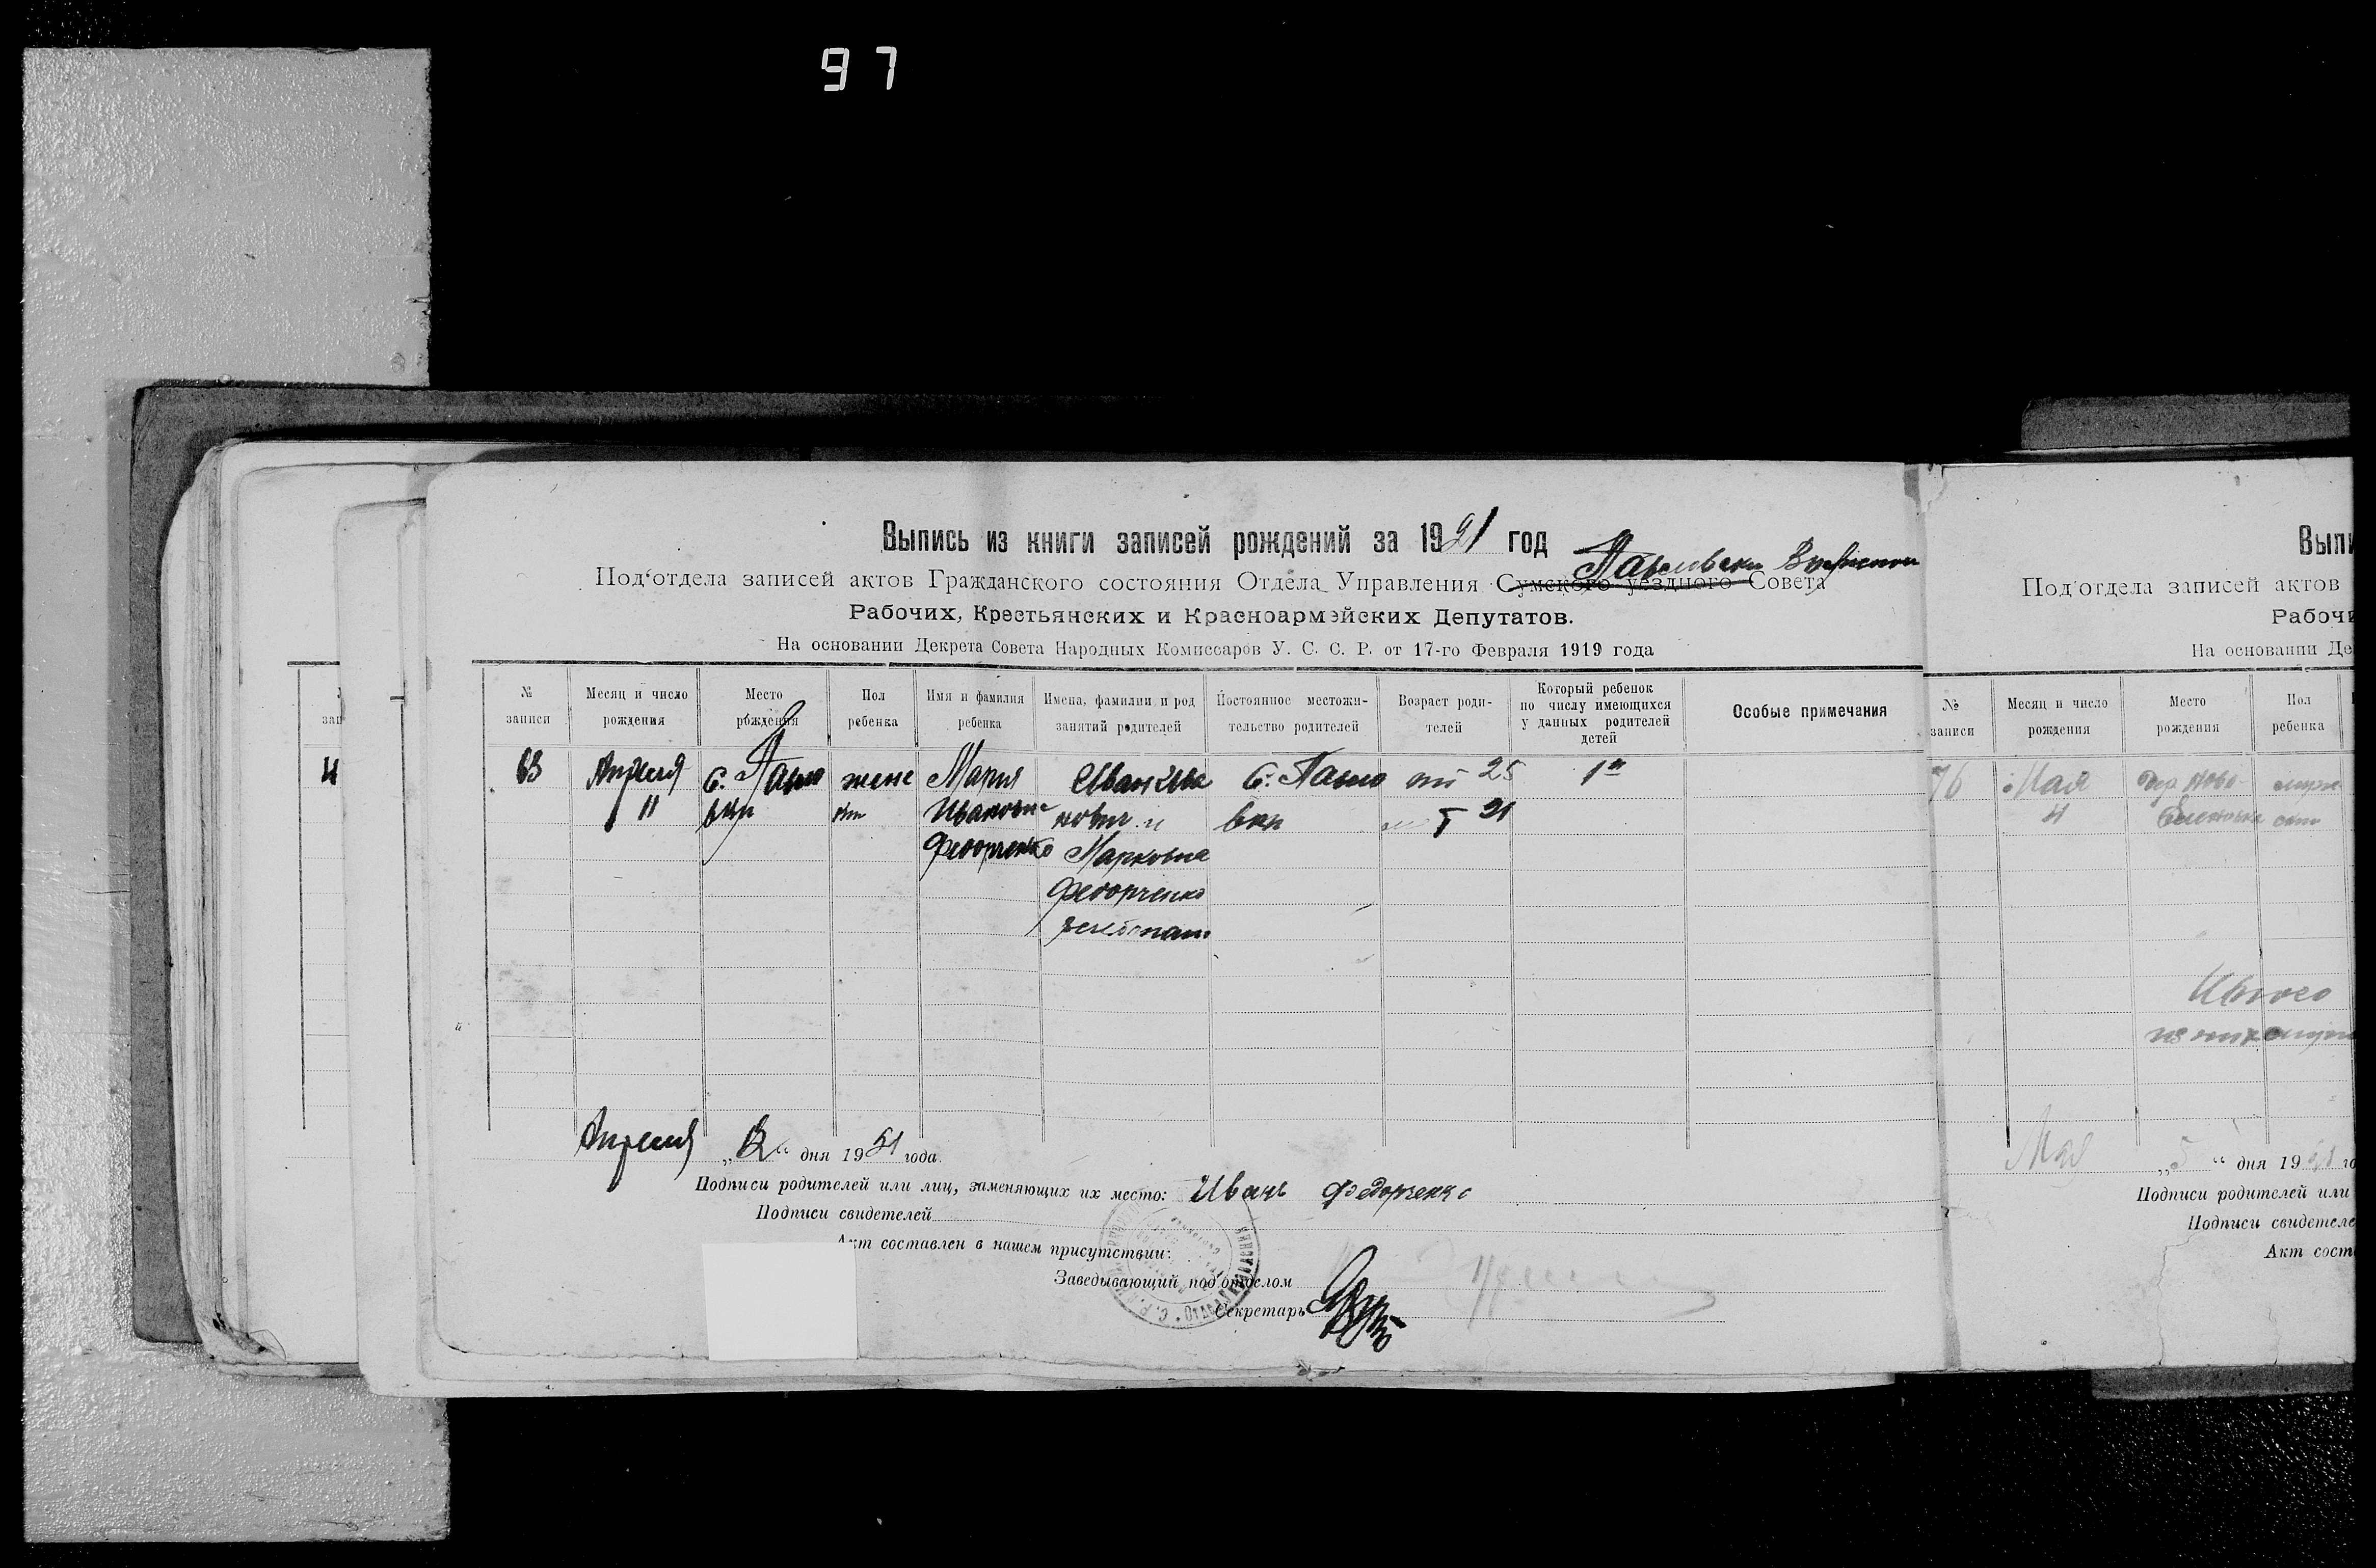 97
Выпись из книги записей рождений за 1921 год
Под'отдела записей актов Гражданского состояния Отдела Управления Сумского уездного Совета
Рабочих, Крестьянских и Красноармейских Депутатов.
На основании Декрета Совета Народных Комиссаров У. С. С. Р. от 17-го Февраля 1919 года
№ записи
Месяц и число рождения
Место рождения
Пол ребенка
Имя и фамилия ребенка
Имена, фамилии и род занятий родителей
Постоянное местожительство родителей
Возраст родителей
Который ребенок по числу имеющихся у данных родителей детей
Особые примечания
63
Апреля
11
с. Павло
вки
женс
Мария
Ивановна
Федорченко
Иван
и
Марковна
Федорченко
С. Павло
вки
25
21
1й
Апреля „12“ дня 1921 года.
Подписи родителей или лиц, заменяющих их место: Иван Федорченко
Подписи свидетелей
Акт составлен в нашем присутствии:
Заведывающий под'отделом
Секретарь
Вып
Под'отдела записей актов
Рабоч
На основании Де
№ записи
Месяц и число рождения
Место рождения
Пол ребенка
76
Мая
4
Мая „5“ дня 1921 го
Подписи родителей или
Подписи свидетеле
Акт сост